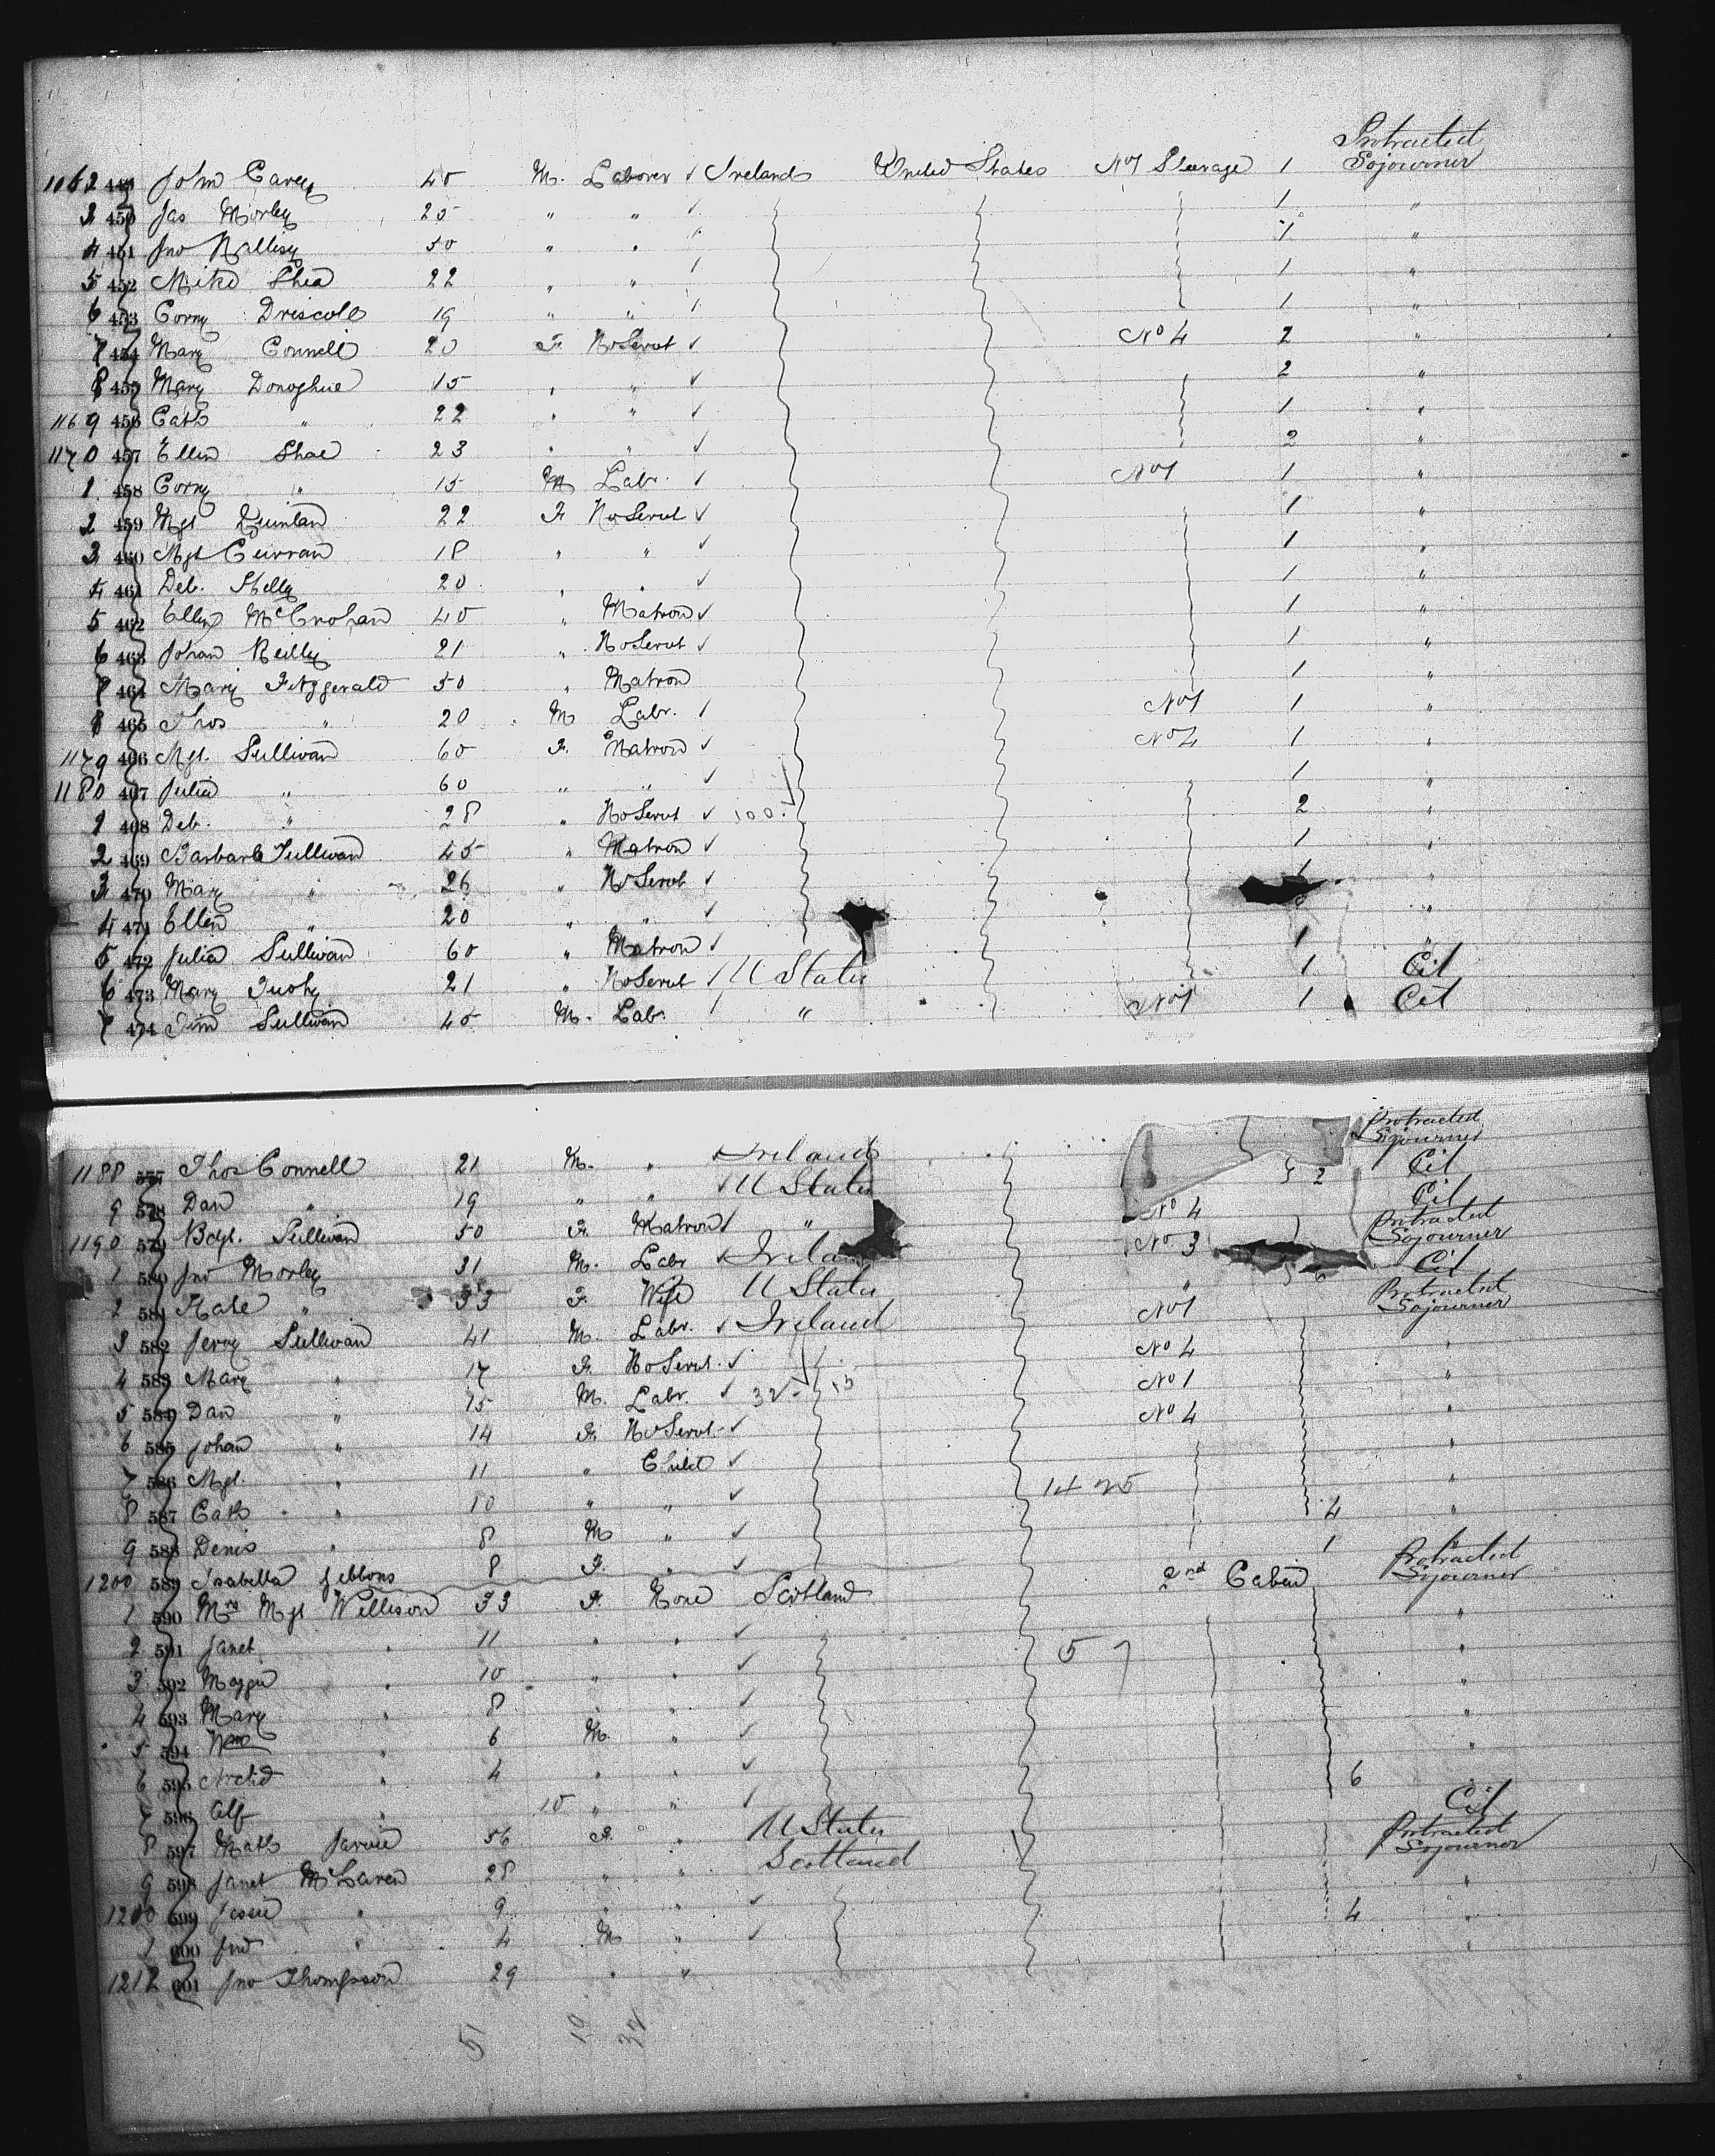 Protracted
1162 449 John Carey 45 M. Laborer ✓ Ireland United States No 1 Steerage 1 Sojourner
3 450 Jas Morley 25 " " ✓ 1 "
4 451 Jno 50 " " ✓ 1 "
5 452 Mike Shea 22 " " ✓ 1 "
6 453 Corny Driscoll 19 " " ✓ 1 "
7 454 Mary Connell 20 F. Ho Servt ✓ No 4 2 "
8 455 Mary Donoghue 15 " " ✓ 2 "
1169 456 Cath " 22 " " ✓ 1 "
1170 457 Ellen Shae 23 " " ✓ 2 "
1 458 Corny " 15 M Labr. ✓ No 1 1 "
2 459 Mgt Quinlan 22 F. Ho Servt ✓ 1 "
3 460 Mgt Curran 18 " " ✓ 1 "
4 461 Deb. Shelly 20 " " ✓ 1 "
5 462 Ellen McCrohan 40 " Matron ✓ 1 "
6 463 Johan Reilly 21 " Ho Servt ✓ 1 "
7 464 Mary Fitzgerald 50 " Matron 1 "
8 465 Thos " 20 M Labr. ✓ No 1 1 "
1179 466 Mgt. Sullivan 60 F. Matron ✓ No 4 1 "
1180 467 Julia " 60 " " ✓ 1 "
1 468 Deb. " 28 " Ho Servt ✓ 100. 2 "
2 469 Barbara Sullivan 45 " Matron ✓ 1 "
3 470 Mary " 26 " Ho Servt ✓ 1 "
4 471 Ellen " 20 " " ✓ "
5 472 Julia Sullivan 60 " Matron ✓ 1 "
6 473 Mary Tuohy 21 " Ho Servt ✓ U States 1 Cit
7 474 Tim Sullivan 45 M. Labr. ✓ " No 1 1 Cit
Protracted
Sojourner
1188 577 Thos Connell 21 M. " ✓ Ireland
9 578 Dan " 19 " " ✓ U States 2 Cit
1190 579 Bdgt. Sullivan 50 F. Matron ✓ " No 4 Cit
1 580 Jno Morley 31 M. Labr ✓ Ireland No. 3 Protracted Sojourner
2 581 Kate " 33 F. Wife U States " Cit
3 582 Jerry Sullivan 41 M Labr. ✓ Ireland No 1 Protracted Sojourner
4 583 Mary " 17 F. Ho Servt. ✓ No 4 "
5 584 Dan " 15 M. Labr. ✓ 32 No 1 "
6 585 Johan " 14 F. Ho Servt ✓ No 4 "
7 586 Mgt. " 11 " Child ✓ "
8 587 Cath " 10 " " ✓ 14 25 "
9 588 Denis " 8 M " ✓ 4 "
1200 589 Isabella Gibbons 8 F. " ✓ 1 "
1 590 Mrs Mgt Willison 33 F. None Scotland 2nd Cabin Protracted Sojourner
2 591 Janet " 11 " " ✓ "
3 592 Maggie " 10 " " ✓ 5 7 "
4 593 Mary " 8 " " ✓ "
5 594 Wm " 6 M. " ✓ "
6 595 Archd " 4 " " ✓ "
7 596 Alf " 10 " " ✓ 6
8 597 Math Jarvie 56 F. " U States Cit
9 598 Janet McLaren 28 " " Scotland Protracted Sojourner
1200 599 Jessie " 9 " " ✓ "
1 600 Jno " 4 M " ✓ 4 "
1212 601 Jno Thompson 29 " "
51 10 32